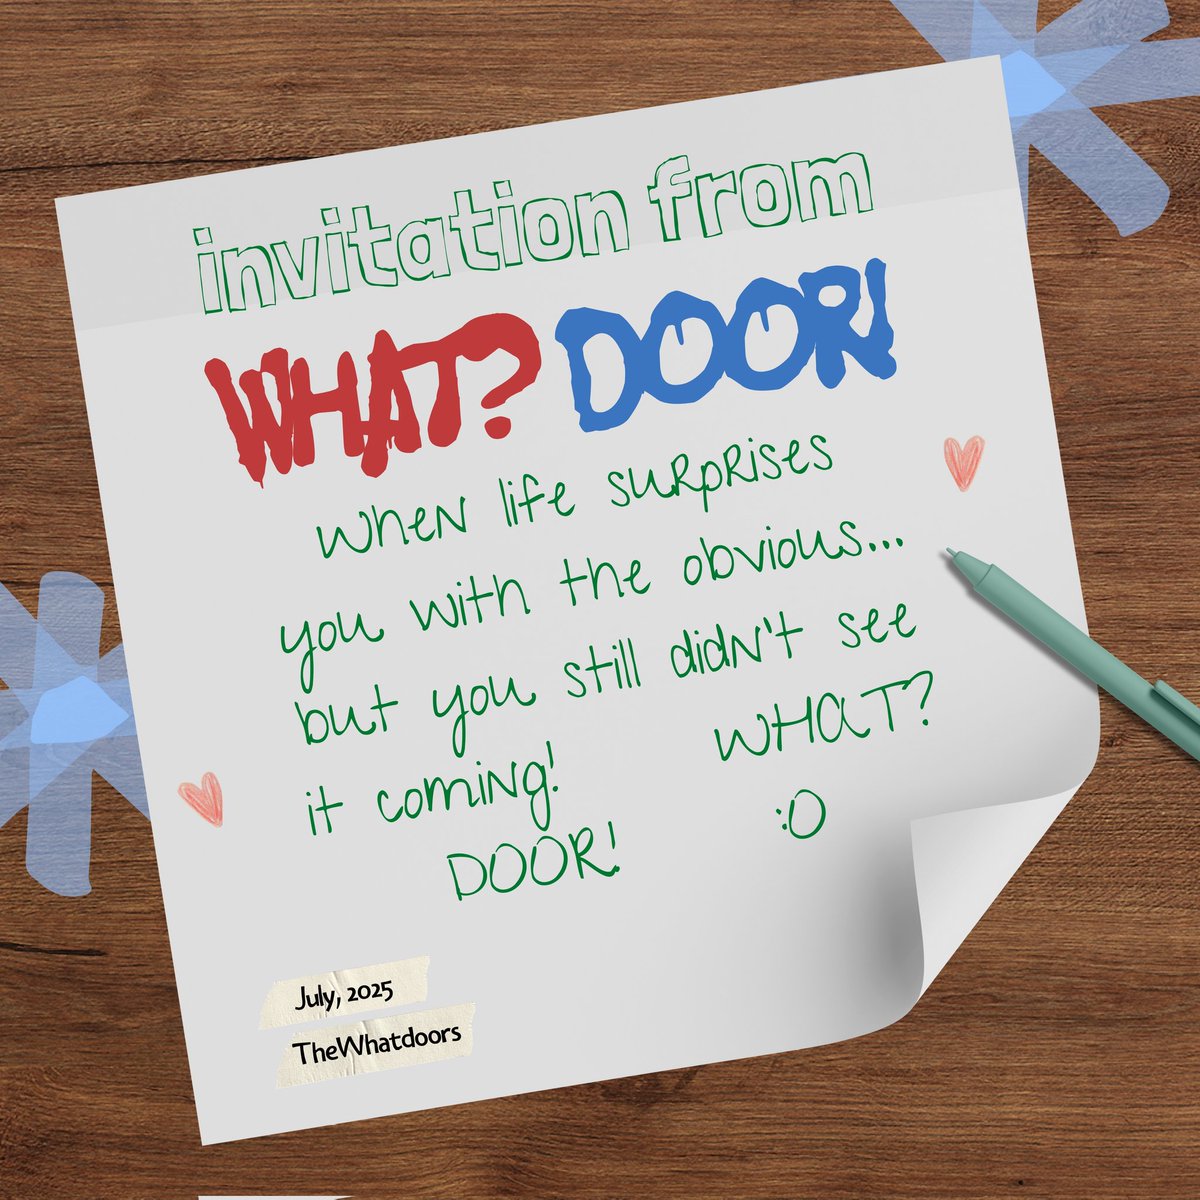 invitation from
WHAT? DOOR!
when life surprises
you with the obvious...
but you still didn't see
it coming! WHAT?
DOOR! :O
July, 2025
TheWhatdoors